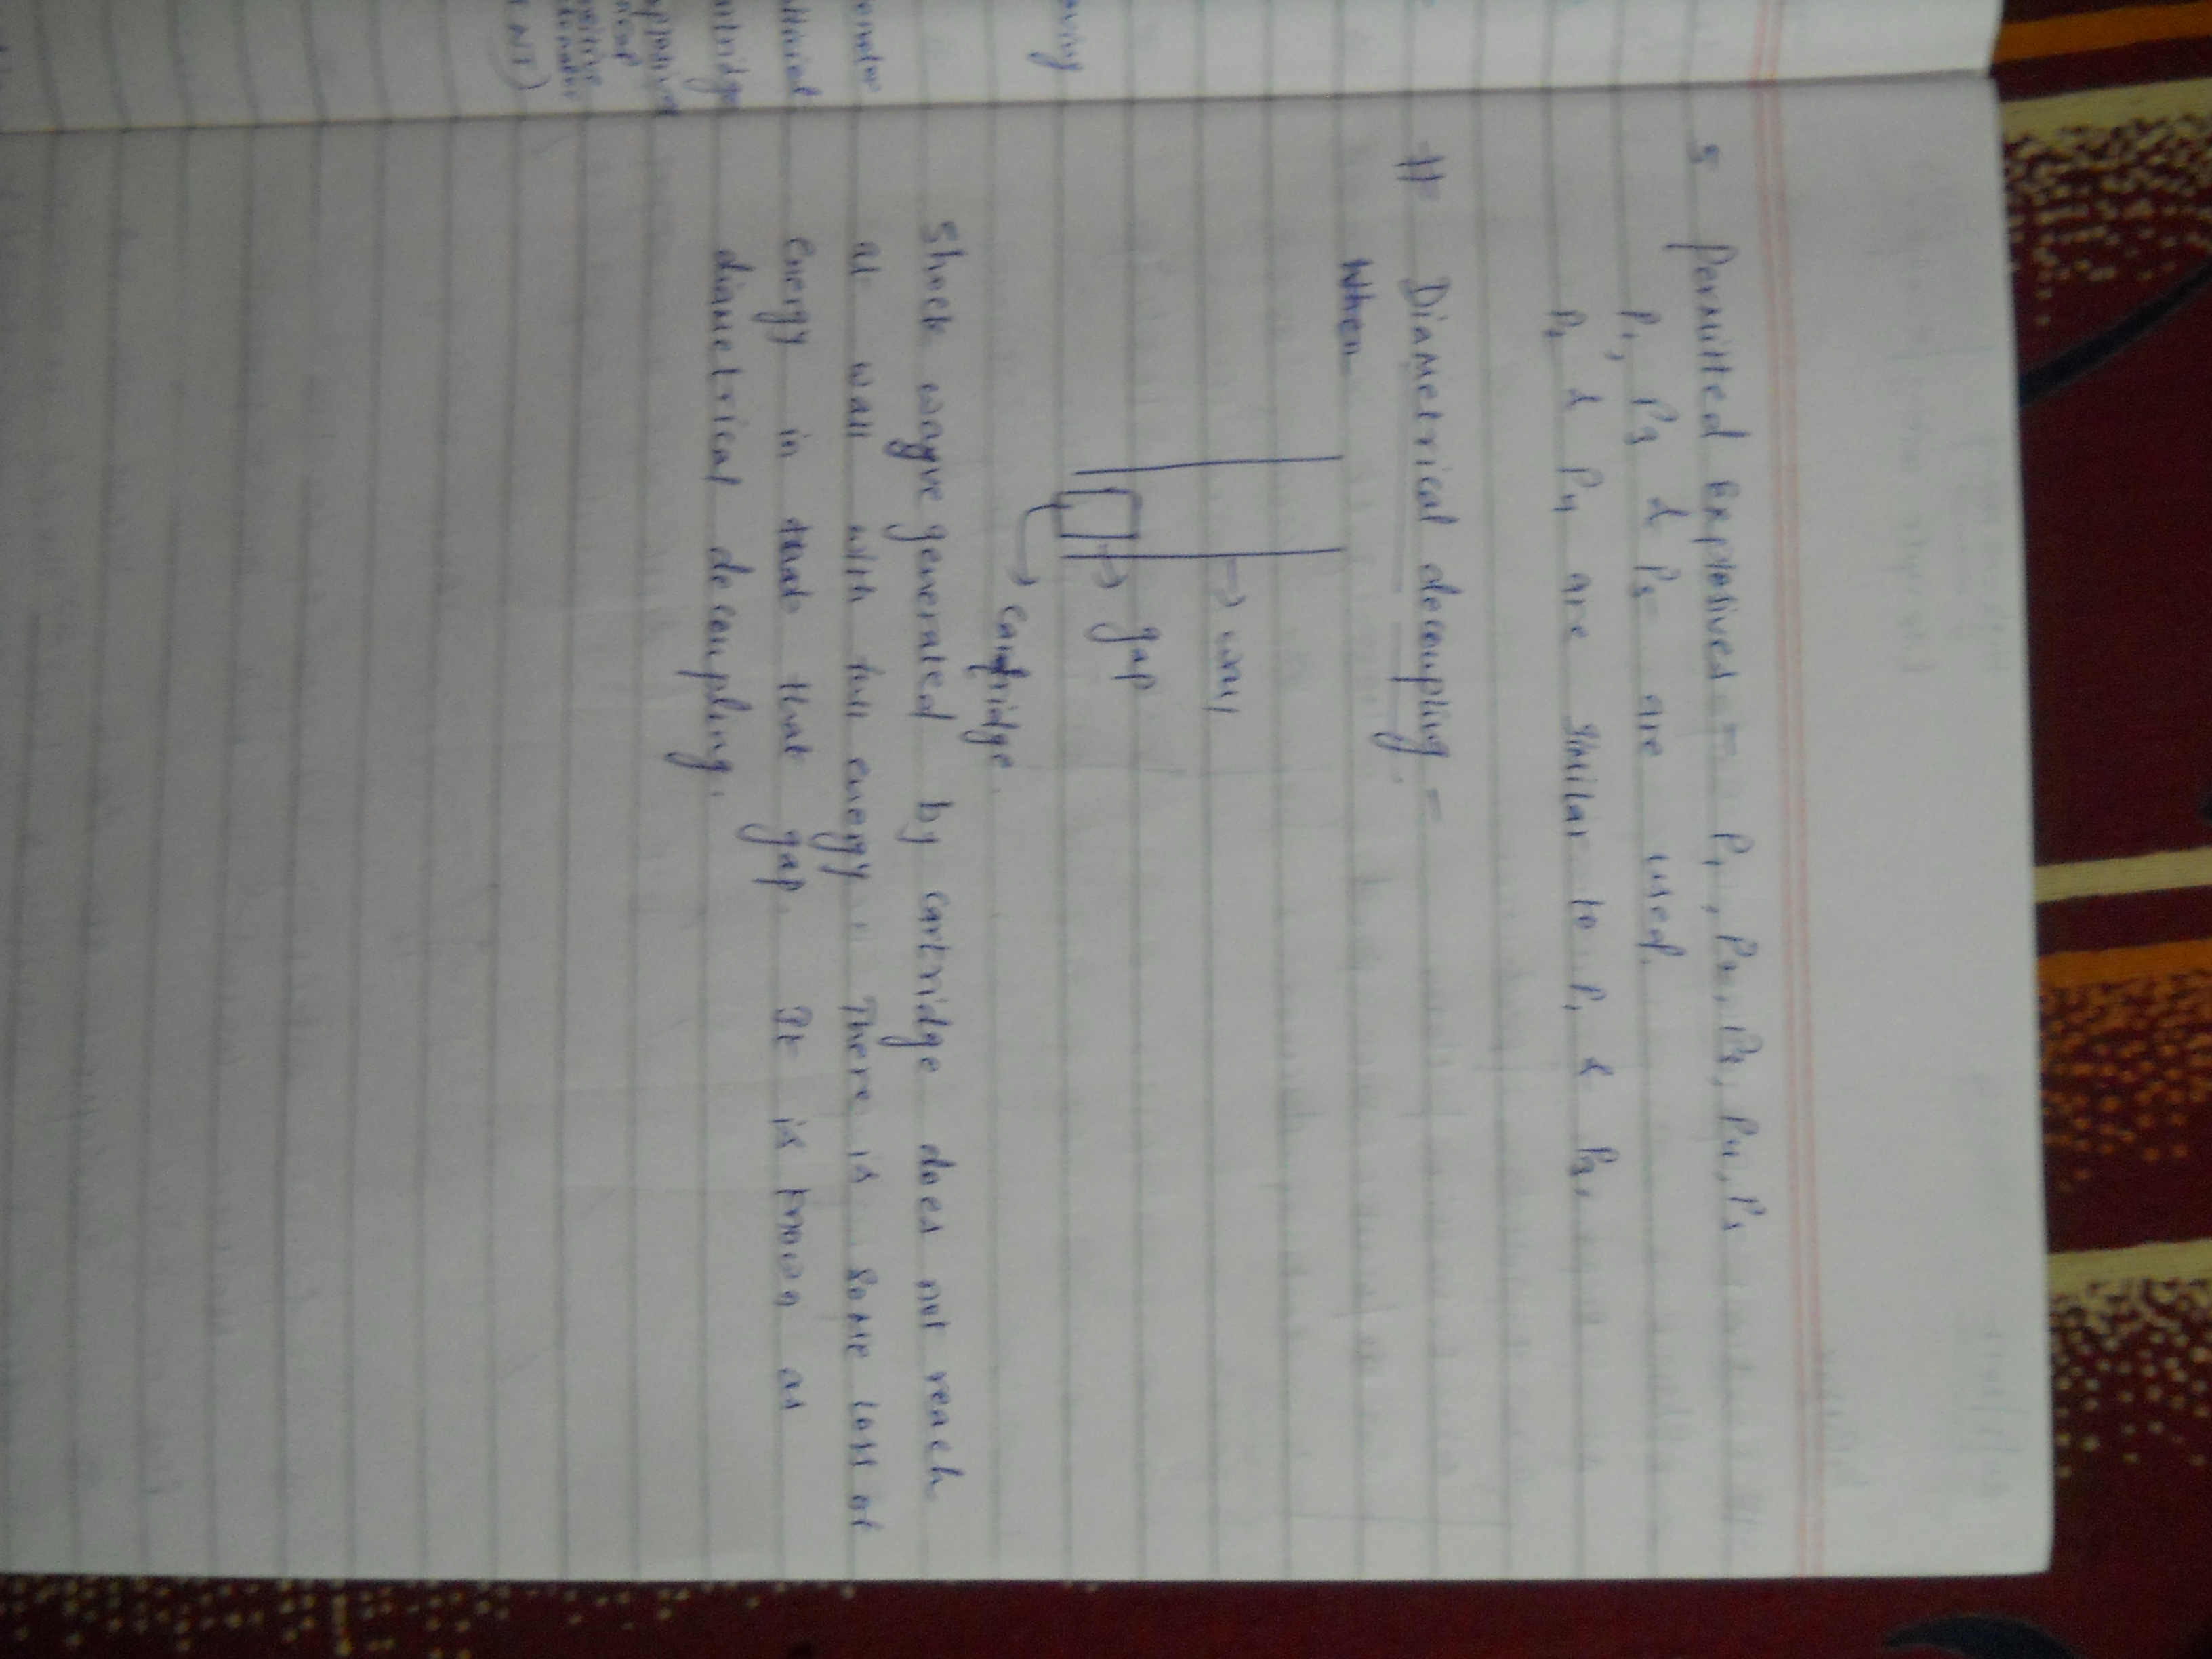 5 Permitted Explosives - P1, P2, P3, P4, P5
P1, P3 & P5 are used.
P2 & P4 are similar to P1 & P3.
# Diametrical decoupling -
When
→ wall
→ gap
→ cartridge.
Shock wagve generated by cartridge does not reach
at wall with full energy. There is some loss of
energy in that gap. It is known as
diametrical decoupling.